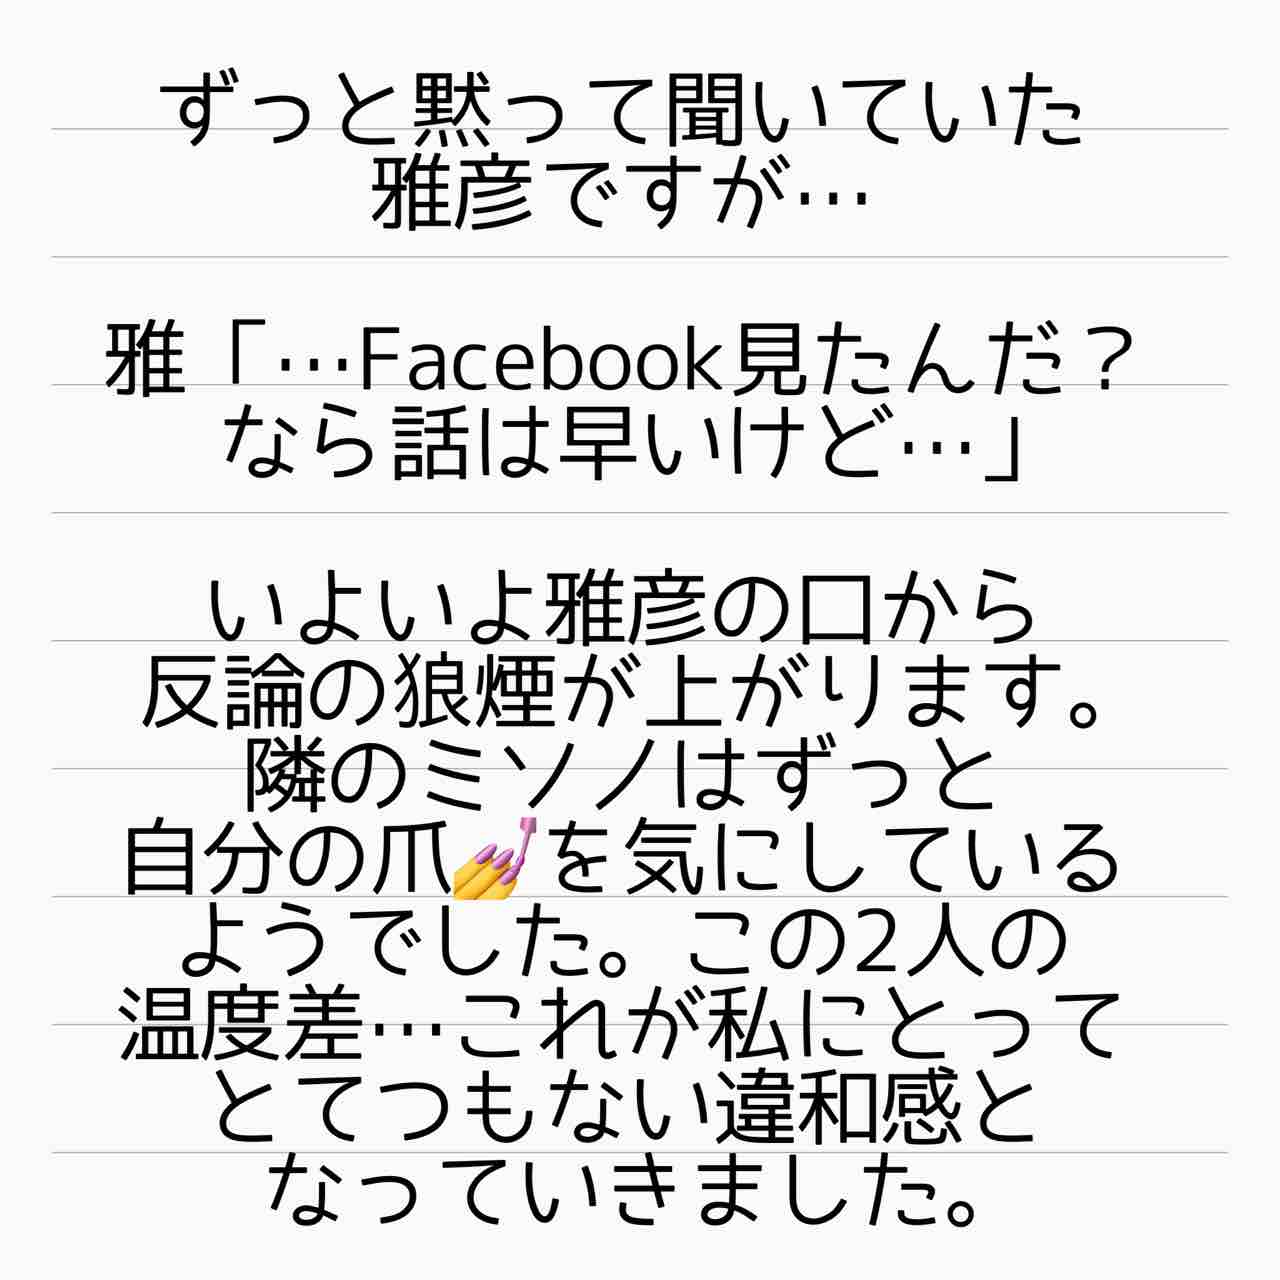 ずっと黙って聞いていた
雅彦ですが…
雅「…Facebook見たんだ？
なら話は早いけど…」
いよいよ雅彦の口から
反論の狼煙が上がります。
隣のミソノはずっと
自分の爪💅を気にしている
ようでした。この2人の
温度差…これが私にとって
とてつもない違和感と
なっていきました。